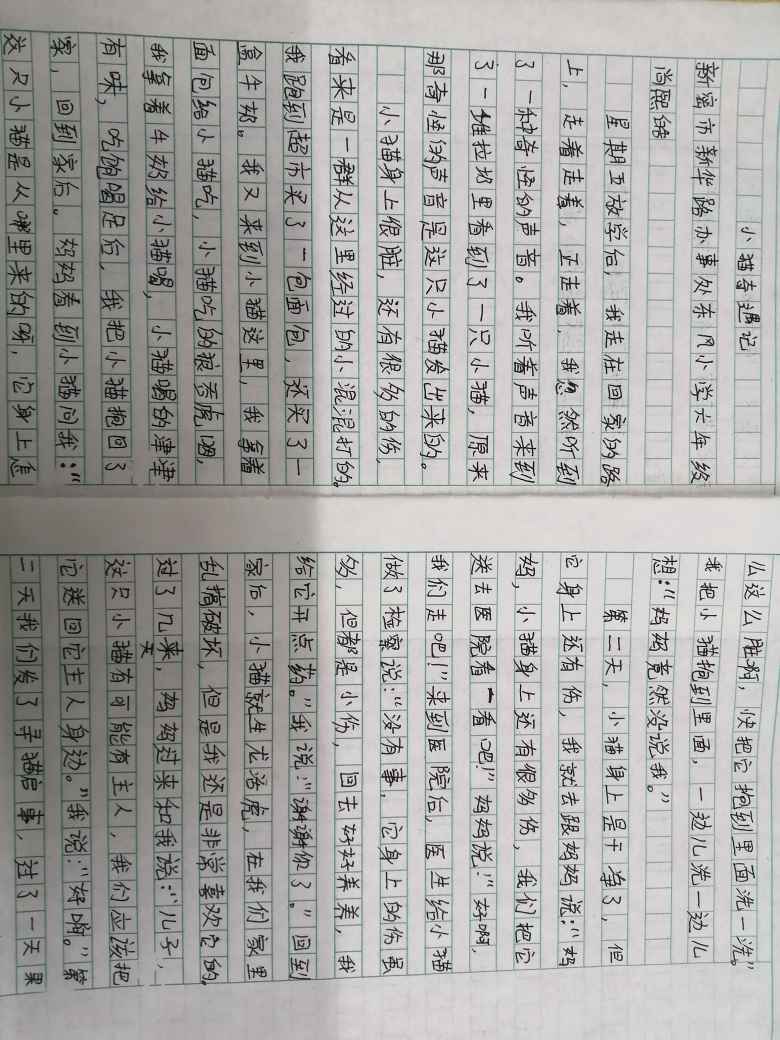 小猫奇遇记
新密市新华路办事处东凡小学六年级
尚熙皓
星期五放学后，我走在回家的路
上，走着走着，正走着，我忽然听到
了一种奇怪的声音。我听着声音来到
了一堆垃圾里看到了一只小猫，原来
那奇怪的声音是这只小猫发出来的。
小猫身上很脏，还有很多的伤，
看来是一群从这里经过的小混混打的。
我跑到超市买了一包面包，还买了一
盒牛奶。我又来到小猫这里，我拿着
面包给小猫吃，小猫吃的狼吞虎咽，
我拿着牛奶给小猫喝，小猫喝的津津
有味，吃饱喝足后，我把小猫抱回了
家，回到家后。妈妈看到小猫问我：“
这只小猫是从哪里来的呀，它身上怎
么这么脏啊，快把它抱到里面洗一洗。”
我把小猫抱到里面，一边儿洗一边儿
想：“妈妈竟然没说我。”
第二天，小猫身上是干净了，但
它身上还有伤，我就去跟妈妈说：“妈
妈，小猫身上还有很多伤，我们把它
送去医院看一看吧！”妈妈说：“好啊，
我们走吧！”来到医院后，医生给小猫
做了检察说：“没有事，它身上的伤虽
多，但都是小伤，回去好好养养，我
给它开点药。”我说：“谢谢你了。”回到
家后，小猫就生龙活虎，在我们家里
乱搞破坏，但是我还是非常喜欢它的。
过了几天，妈妈过来和我说：“儿子，
这只小猫有可能有主人，我们应该把
它送回它主人身边。”我说：“好啊。”第
二天我们发了寻猫启事，过了一天果